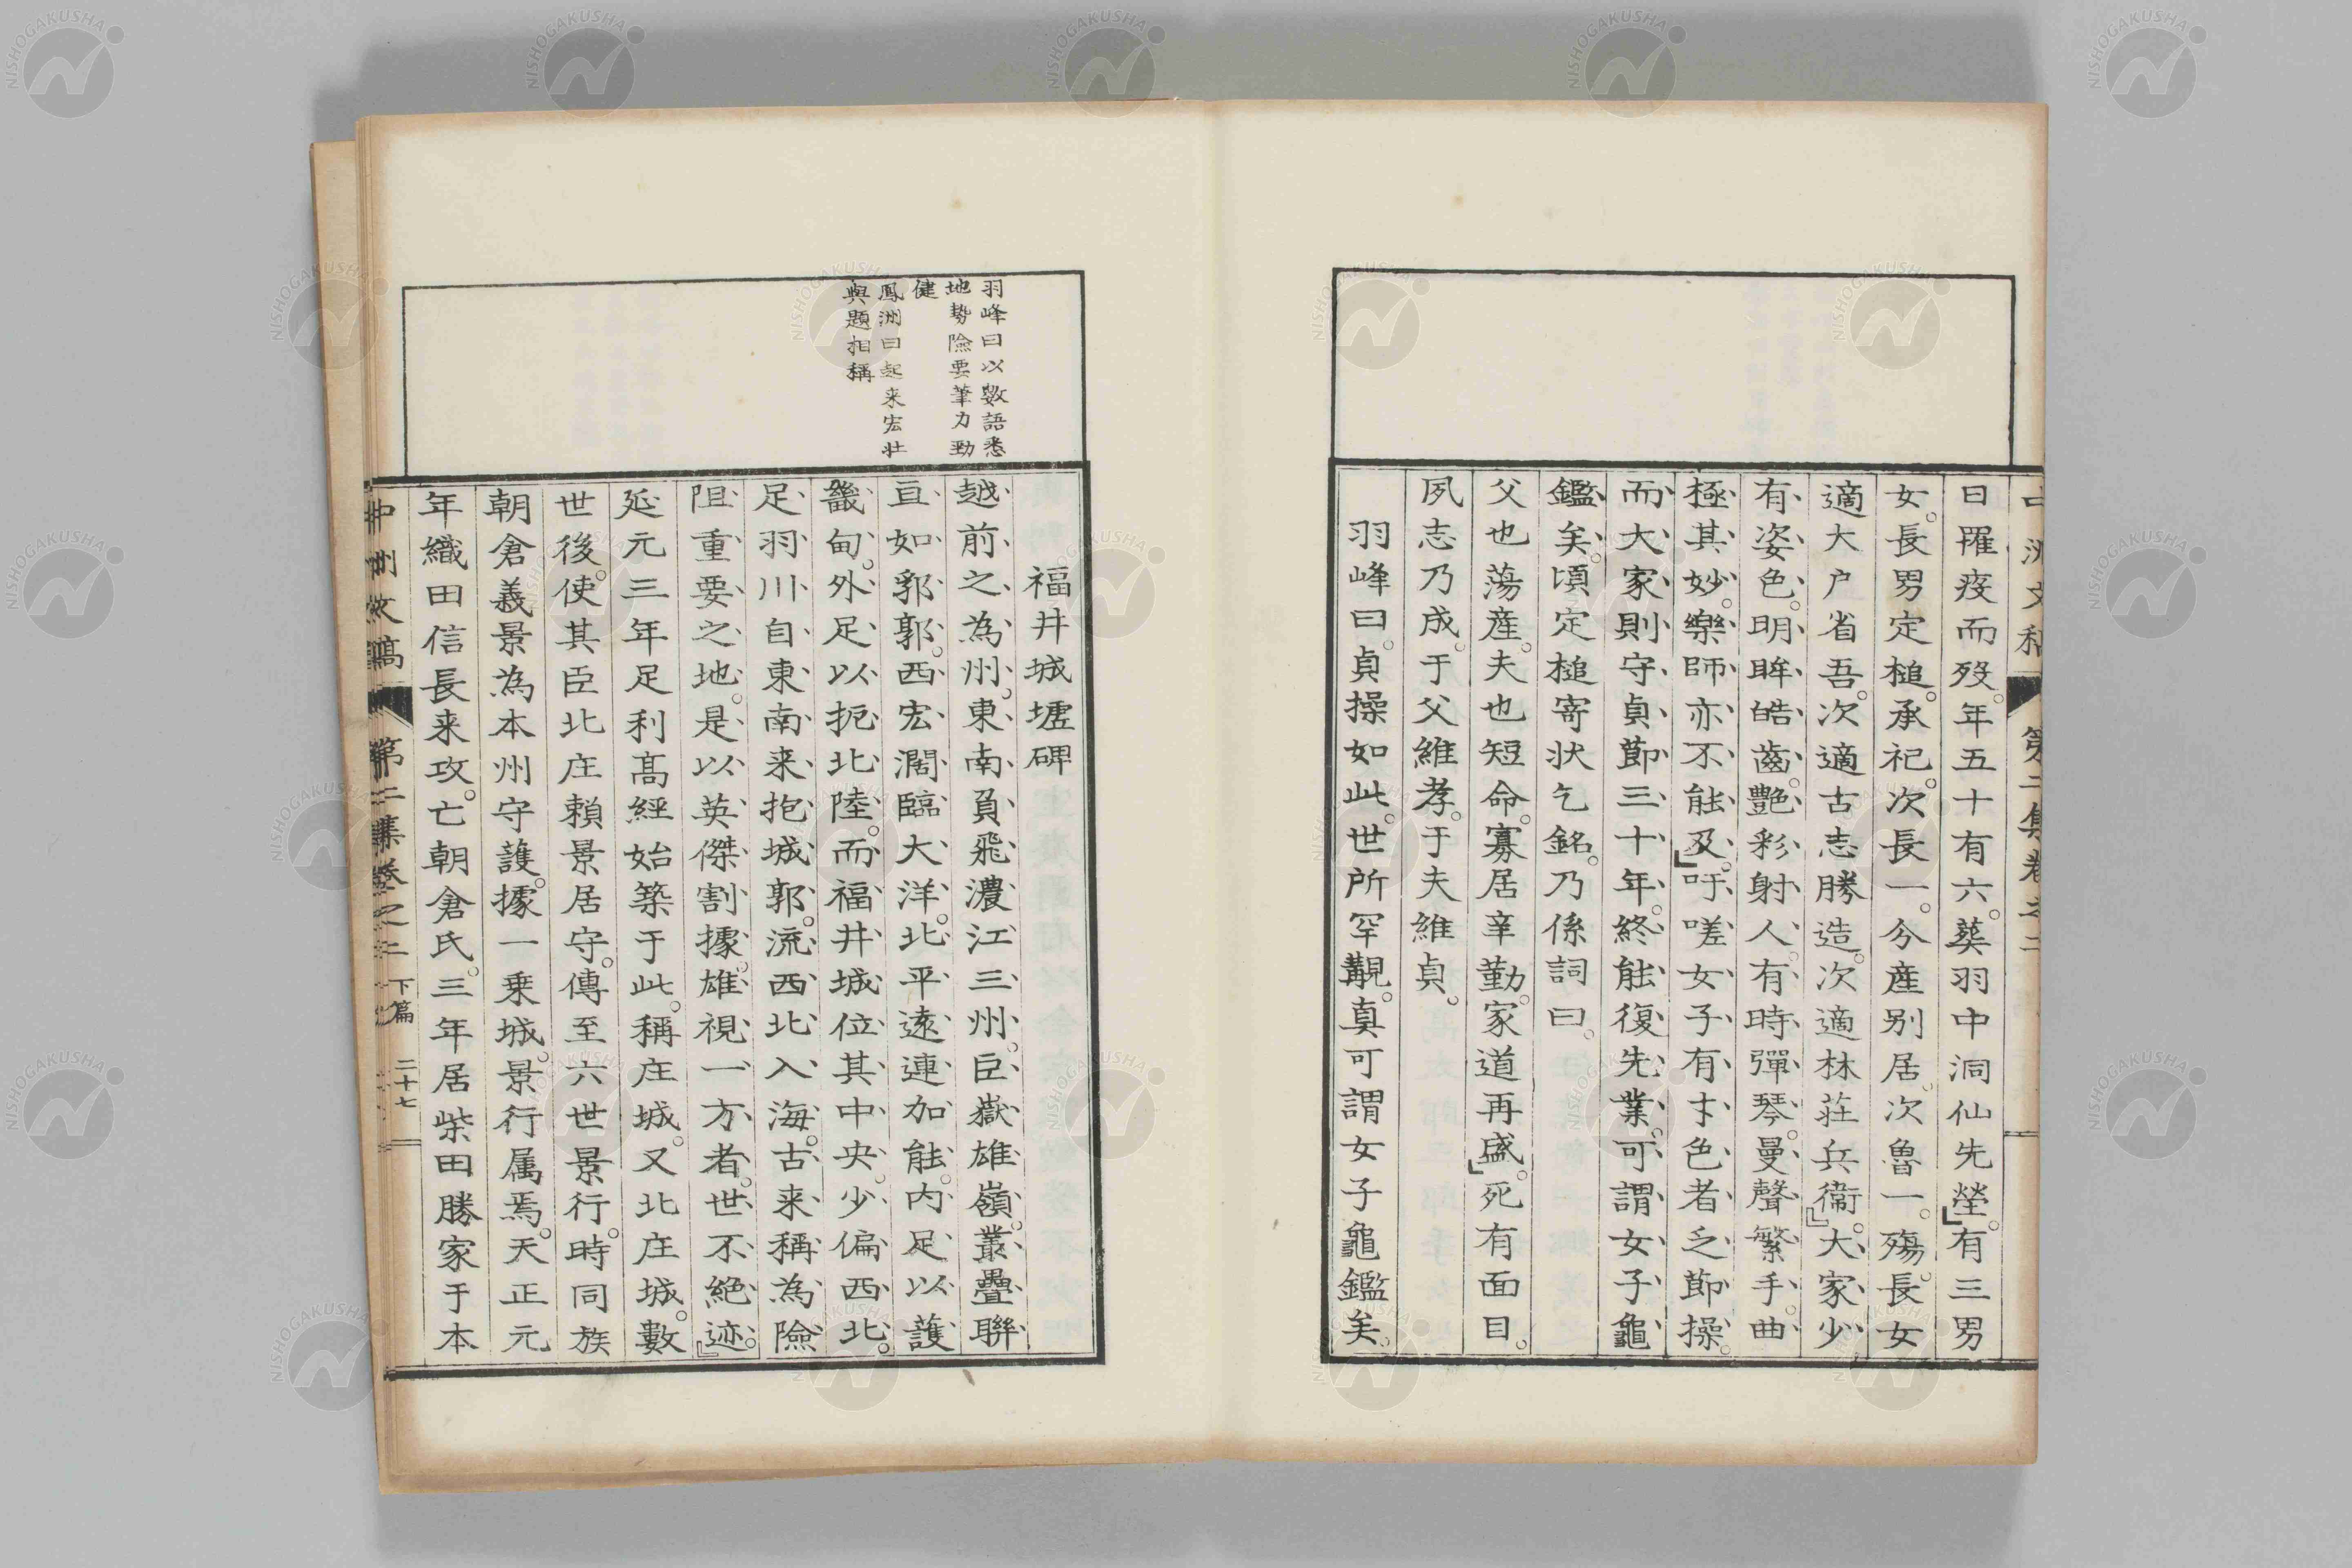 日罹疫而歿。年五十有六。葬羽中洞仙先塋。」有三男
女。長男定槌。承祀。次長一。今產別居。次魯一。殤。長女
適大戶省吾。次適古志勝造。次適林莊兵衞。」大家少
有姿色。明眸皓齒。艷彩射人。有時彈琴。曼聲繁手。曲
極其妙。樂師亦不能及。」吁嗟女子有才色者。乏節操。
而大家則守貞節三十年。終能復先業。可謂女子龜
鑑矣。頃定槌寄狀乞銘。乃係詞曰。
父也蕩產。夫也短命。寡居辛勤。家道再盛。」死有面目。
夙志乃成。于父維孝。于夫維貞。
羽峰曰。貞操如此。世所罕覯。真可謂女子龜鑑矣。
羽峰曰以數語悉
地勢險要筆力勁
健
鳳洲曰起来宏壯
與題相稱
福井城墟碑
越前之為州。東南負飛濃江三州。巨嶽雄嶺。叢疊聯
亘如郛郭。西宏濶臨大洋。北平遠連加能。內足以護
畿甸。外足以扼北陸。而福井城位其中央。少偏西北。
足羽川自東南来抱城郭。流西北入海。古来稱為險
阻重要之地。是以英傑割據。雄視一方者。世不絕迹。」
延元三年足利高經始築于此。稱庄城。又北庄城。數
世後。使其臣北庄賴景居守。傳至六世景行。時同族
朝倉義景為本州守護。據一乗城。景行属焉。天正元
年織田信長来攻。亡朝倉氏。三年居柴田勝家于本
中洲文稿 第二集卷之二 下篇 二十七